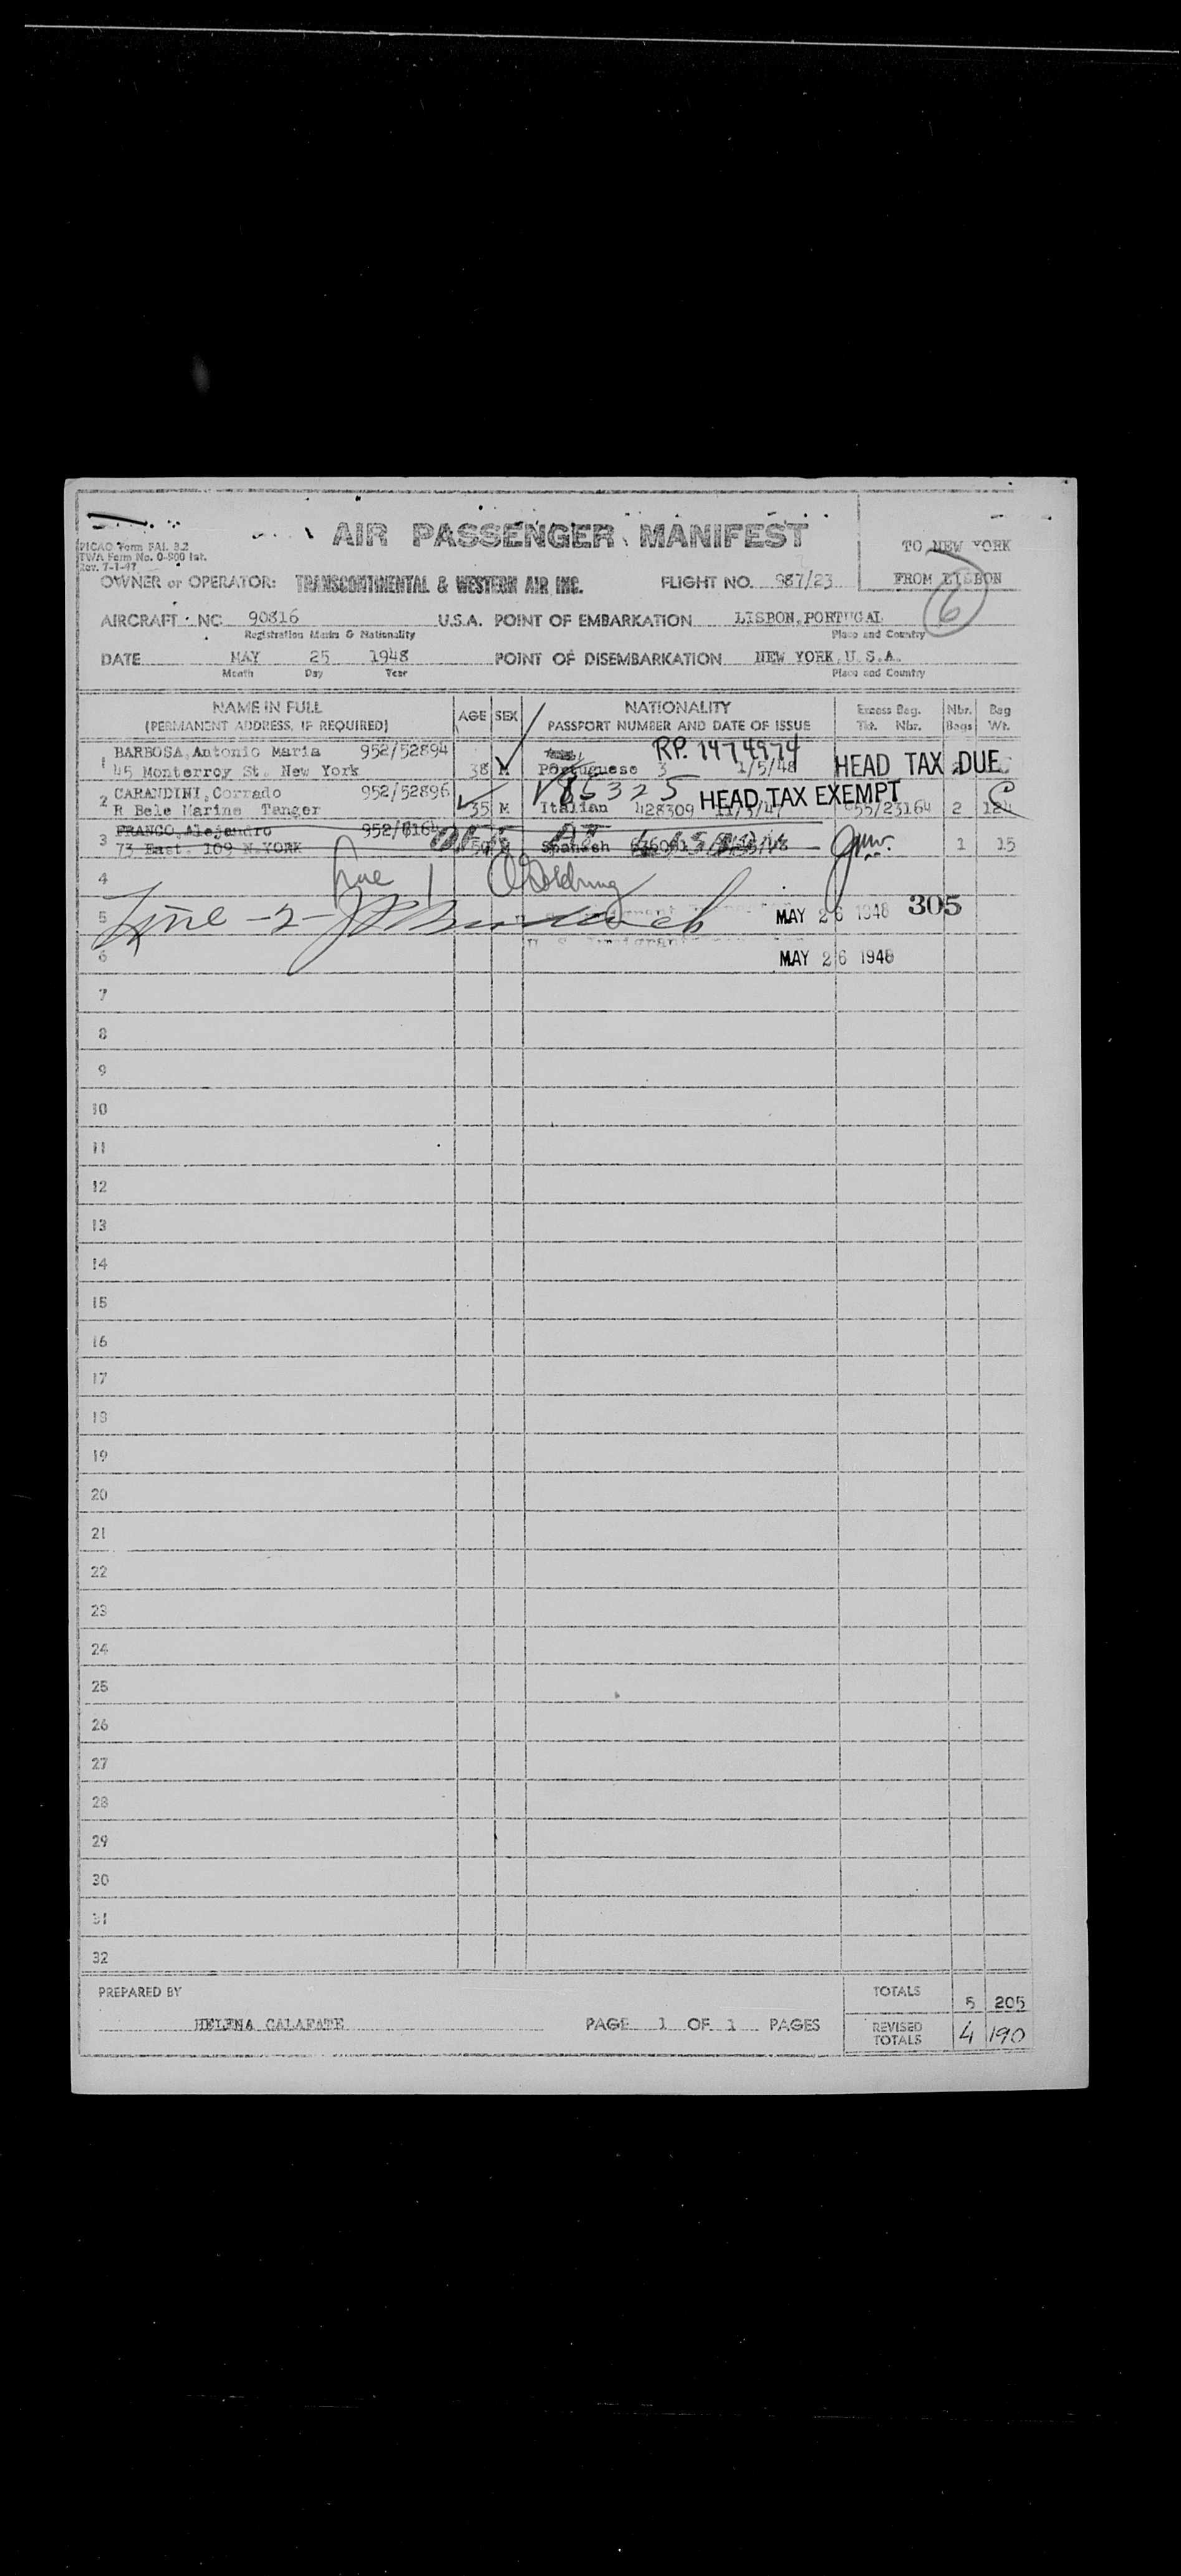 AIR PASSENGER MANIFEST
PICAO Form FAL 3.2
TWA Form No. 0-800 Int.
Rev. 7-1-47
TO NEW YORK
OWNER or OPERATOR: TRANSCONTINENTAL & WESTERN AIR INC. FLIGHT NO. 987/23 FROM LISBON
6
AIRCRAFT NC 90816 U.S.A. POINT OF EMBARKATION LISBON, PORTUGAL
Registration Marks & Nationality Place and Country
DATE MAY 25 1948 POINT OF DISEMBARKATION NEW YORK, U.S.A.
Month Day Year Place and Country
NAME IN FULL AGE SEX NATIONALITY Excess Bag. Nbr. Bag
(PERMANENT ADDRESS, IF REQUIRED) PASSPORT NUMBER AND DATE OF ISSUE Tkt. Nbr. Bags Wt.
1 BARBOSA, Antonio Maria 952/52894 RP. 1474974
45 Monterroy St. New York 38 M Portuguese 3 1/5/48 HEAD TAX DUE
2 CARANDINI, Corrado 952/52896 V85325 HEAD TAX EXEMPT
R Bele Marina Tanger 35 M Italian 428309 11/3/47 955/23164 2 124
3 FRANCO, Alejandro
73 East. 109 N.YORK Spanish 1 15
4 Line 1
5 Line -2- MAY 26 1948 305
6 MAY 26 1948
7
8
9
10
11
12
13
14
15
16
17
18
19
20
21
22
23
24
25
26
27
28
29
30
31
32
PREPARED BY TOTALS 5 205
HELENA CALAFATE PAGE 1 OF 1 PAGES REVISED TOTALS 4 190